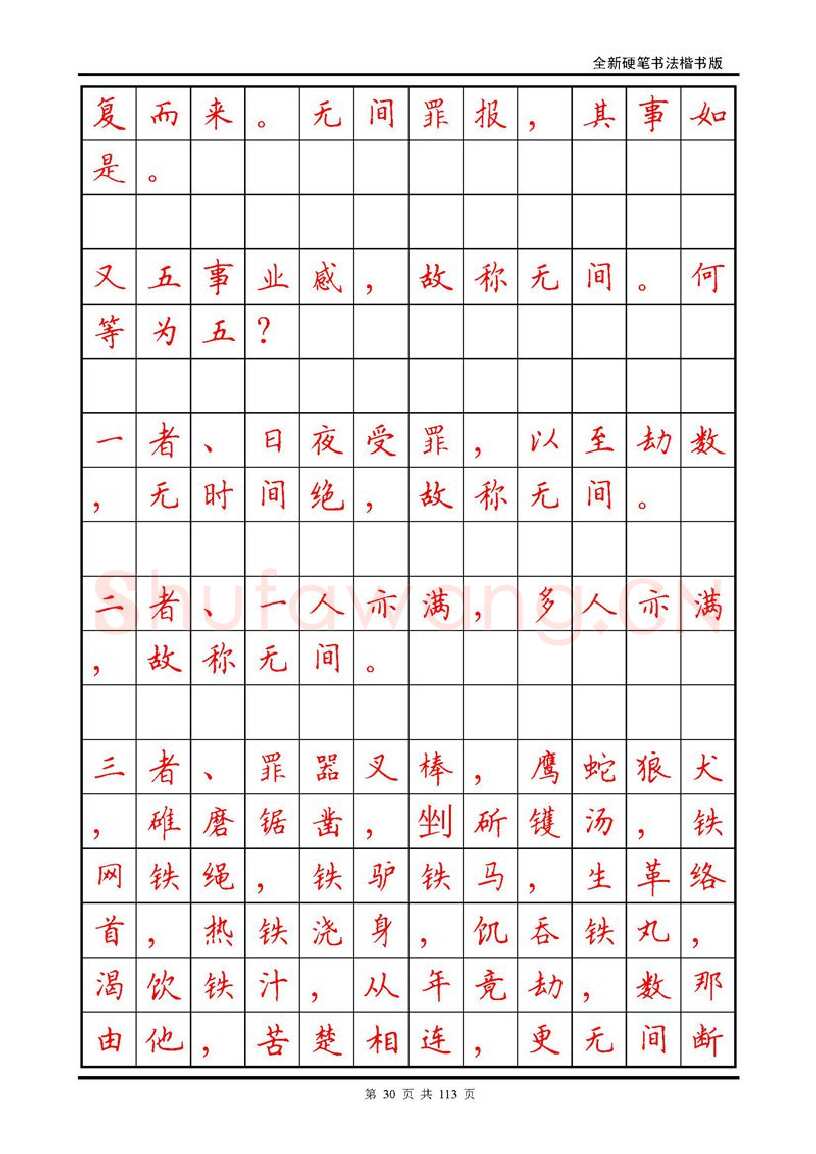 全新硬笔书法楷书版
复而来。无间罪报，其事如
是。
又五事业感，故称无间。何
等为五？
一者、日夜受罪，以至劫数
，无时间绝，故称无间。
二者、一人亦满，多人亦满
，故称无间。
Shufawang.CN
三者、罪器叉棒，鹰蛇狼犬
，碓磨锯凿，剉斫镬汤，铁
网铁绳，铁驴铁马，生革络
首，热铁浇身，饥吞铁丸，
渴饮铁汁，从年竟劫，数那
由他，苦楚相连，更无间断
第 30 页 共 113 页